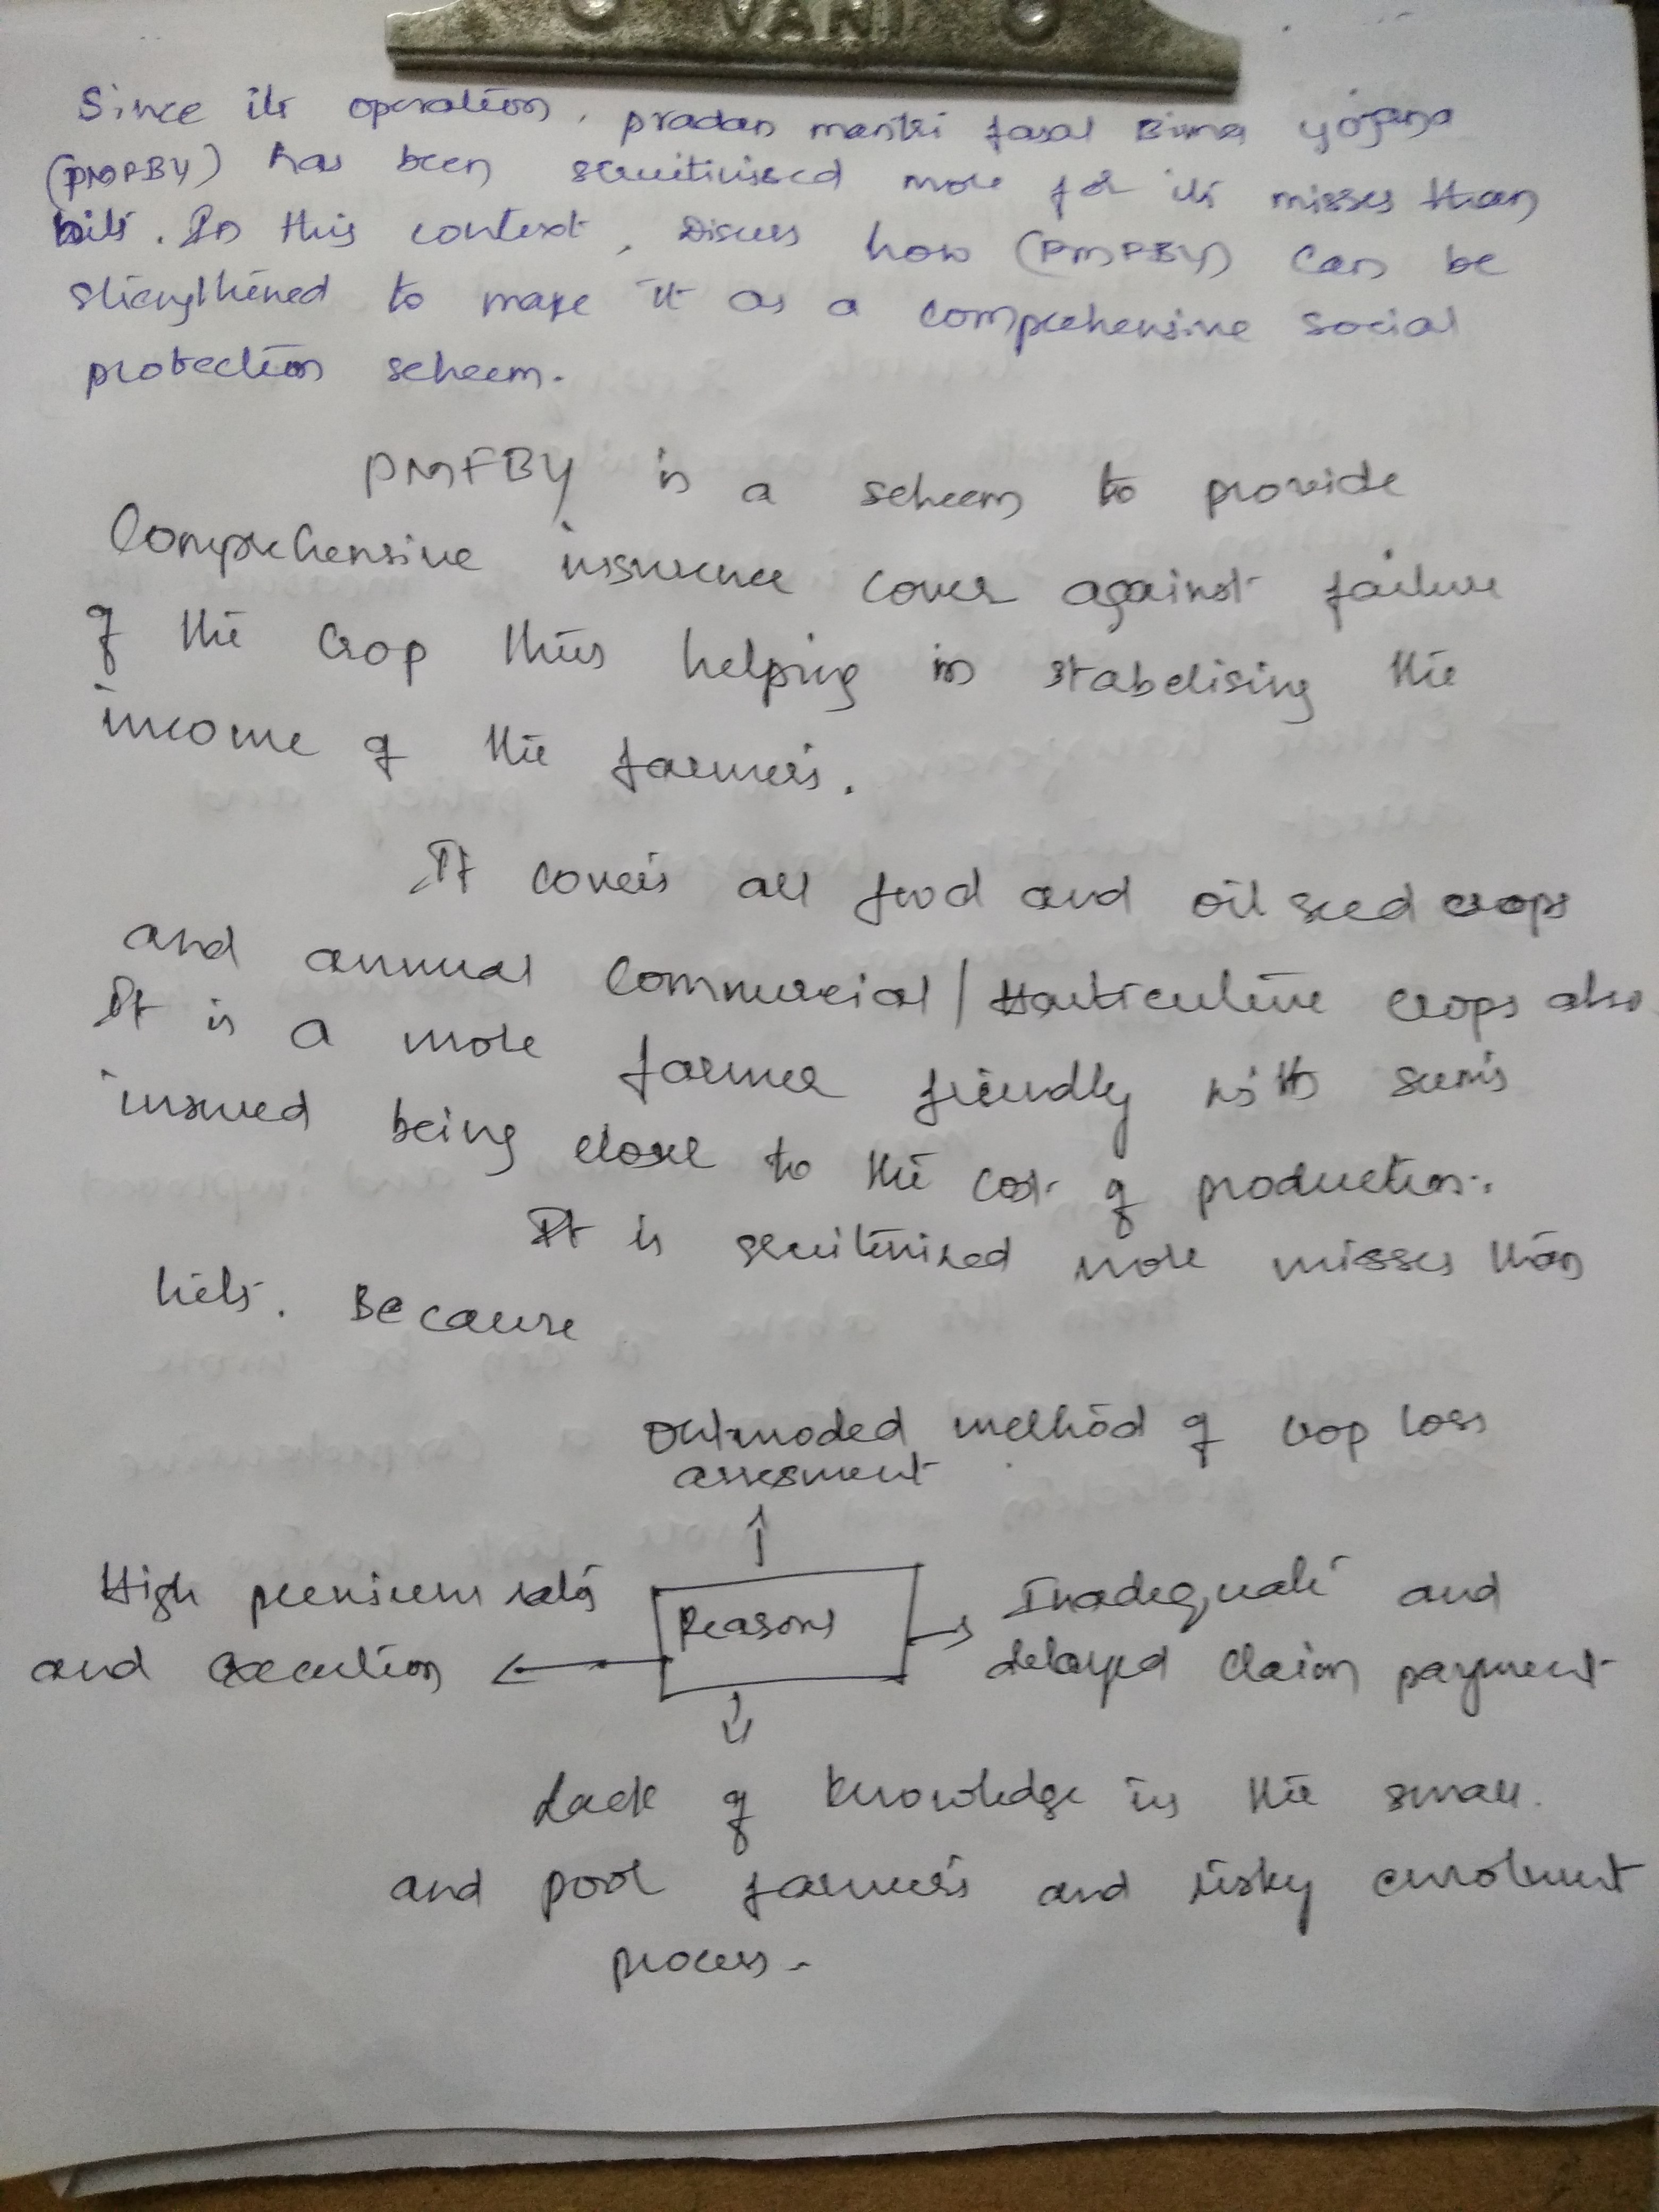 VANI
Since its operation, pradan mantri fasal Bima yojana
(PMFBY) has been scrutinised more for its misses than
hits. In this context, Discuss how (PMFBY) can be
strengthened to make it as a comprehensive social
protection scheem.
PMFBY is a scheem to provide
Comprehensive insurance cover against failure
of the crop thus helping in stabelising the
income of the farmers.
It covers all food and oil seed crops
and annual Commercial / Horticulture crops also
It is a more farmer friendly with sums
insured being close to the cost of production.
It is scrutinized more misses than
hits. Because
Outmoded method of crop loss
assesment
High premium rates
and execution
Reasons
Inadequate and
delayed claim payment
Lack of knowledge in the small
and poor farmers and risky enrolment
process.